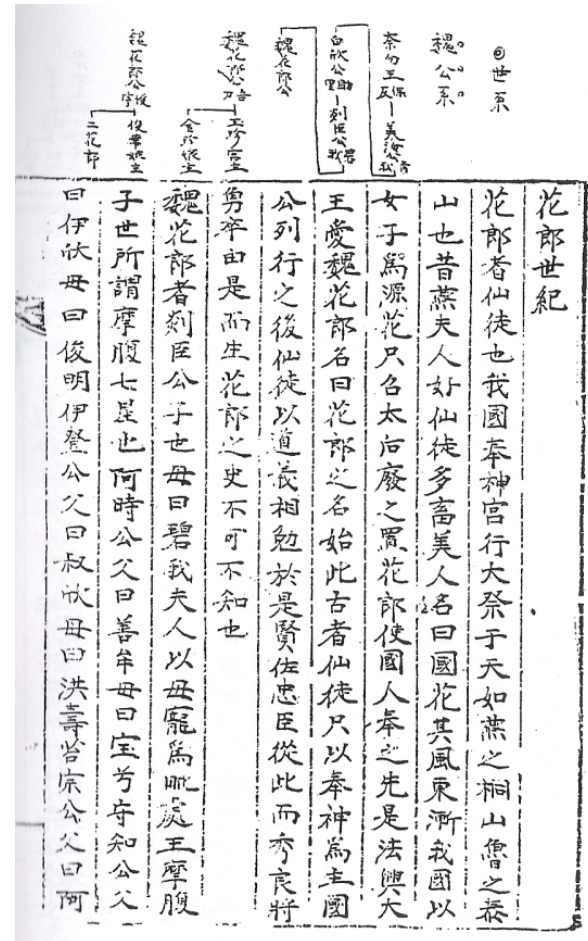 ◎世系
魏公系
奈勿王 保反 美海公 青我
白欣公 助里 剡臣公 碧我
魏花郎公
魏花郎公 吾刀 玉珍宮主
金珍娘主
魏花郎公 俊 俊華娘主
二花郎
花郎世紀
花郎者仙徒也我國奉神宮行大祭于天如燕之桐山魯之泰
山也昔燕夫人好仙徒多畜美人名曰國花其風東漸我國以
女子爲源花只召太后廢之置花郎使國人奉之先是法興大
王愛魏花郎名曰花郎之名始此古者仙徒只以奉神爲主國
公列行之後仙徒以道義相勉於是賢佐忠臣從此而秀良將
勇卒由是而生花郎之史不可不知也
魏花郎者剡臣公子也母曰碧我夫人以母寵爲毗處王摩腹
子世所謂摩腹七星也阿時公父曰善牟母曰宝兮守知公父
曰伊欣母曰俊明伊登公父曰叔欣母曰洪壽苔宗公父曰阿